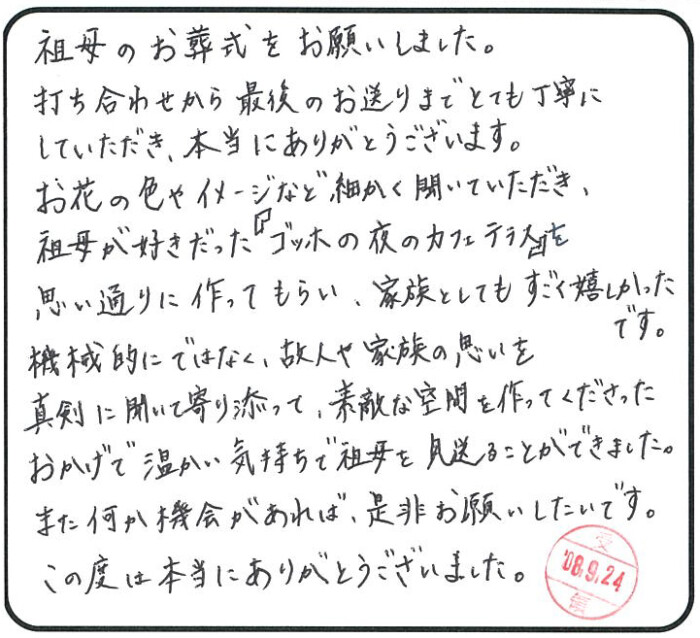 祖母のお葬式をお願いしました。
打ち合わせから最後のお送りまでとても丁寧に
していただき、本当にありがとうございます。
お花の色やイメージなど細かく聞いていただき、
祖母が好きだった『ゴッホの夜のカフェテラス』を
思い通りに作ってもらい、家族としてもすごく嬉しかった
です。
機械的にではなく、故人や家族の思いを
真剣に聞いて寄り添って、素敵な空間を作ってくださった
おかげで温かい気持ちで祖母を見送ることができました。
また何か機会があれば、是非お願いしたいです。
この度は本当にありがとうございました。
受
'08.9.24